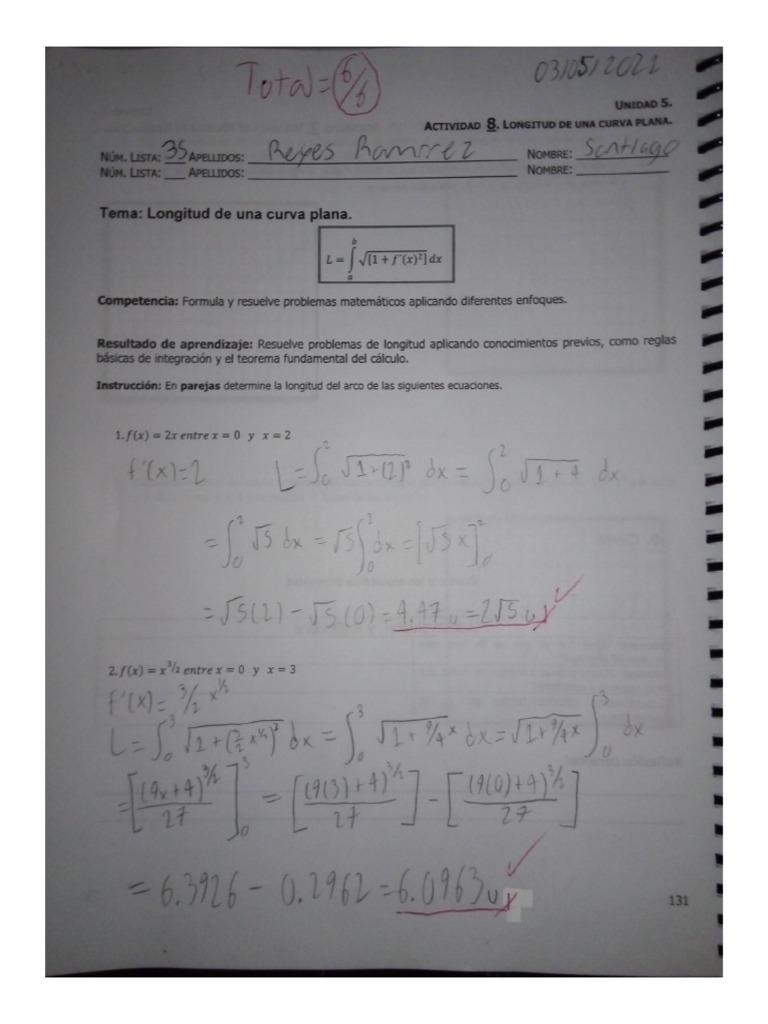 Total = 6/6
03/05/2022
UNIDAD 5.
ACTIVIDAD 8. LONGITUD DE UNA CURVA PLANA.
NÚM. LISTA: 35 APELLIDOS: Reyes Ramirez NOMBRE: Santiago
NÚM. LISTA: ___ APELLIDOS: ___ NOMBRE: ___
Tema: Longitud de una curva plana.
L = ∫_a^b √[1 + f'(x)²] dx
Competencia: Formula y resuelve problemas matemáticos aplicando diferentes enfoques.
Resultado de aprendizaje: Resuelve problemas de longitud aplicando conocimientos previos, como reglas
básicas de integración y el teorema fundamental del cálculo.
Instrucción: En parejas determine la longitud del arco de las siguientes ecuaciones.
1. f(x) = 2x entre x = 0 y x = 2
f'(x)=2 L=∫_0^2 √(1+(2)²) dx = ∫_0^2 √(1+4) dx
= ∫_0^2 √5 dx = √5 ∫_0^2 dx = [√5 x]_0^2
= √5(2) - √5(0) = 4.47 u = 2√5 u
2. f(x) = x^(3/2) entre x = 0 y x = 3
f'(x) = 3/2 x^(1/2)
L = ∫_0^3 √(1+(3/2 x^(1/2))²) dx = ∫_0^3 √(1+9/4 x) dx = √(1+9/4 x) ∫_0^3 dx
= [(9x+4)^(3/2) / 27]_0^3 = [(9(3)+4)^(3/2) / 27] - [(9(0)+4)^(3/2) / 27]
= 6.3926 - 0.2962 = 6.0963 u
131